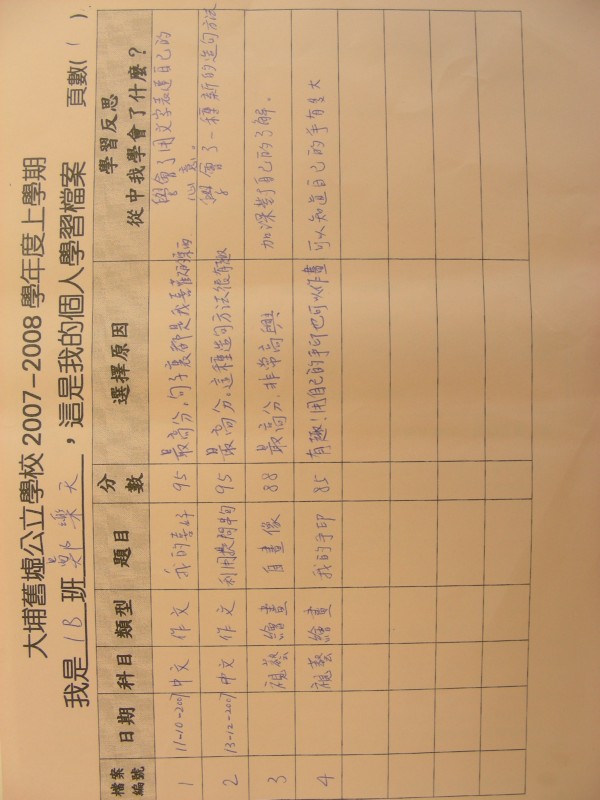 大埔舊墟公立學校 2007-2008 學年度上學期
我是 1B 班 鄭樂天 ，這是我的個人學習檔案 頁數( 1 )
檔案編號 日期 科目 類型 題目 分數 選擇原因 學習反思 從中我學會了什麼？
1 11-10-2007 中文 作文 我的喜好 95 最高分，句子裏都是我喜歡的東西 學會了用文字表達自己的心意。
2 13-12-2007 中文 作文 利用疑問句 95 最高分。這種造句方法很有趣 學會了一種新的造句方法
3 視藝 繪畫 自畫像 88 最高分，非常高興 加深對自己的了解。
4 視藝 繪畫 我的手印 85 有趣！用自己的手印也可以作畫 可以知道自己的手有多大